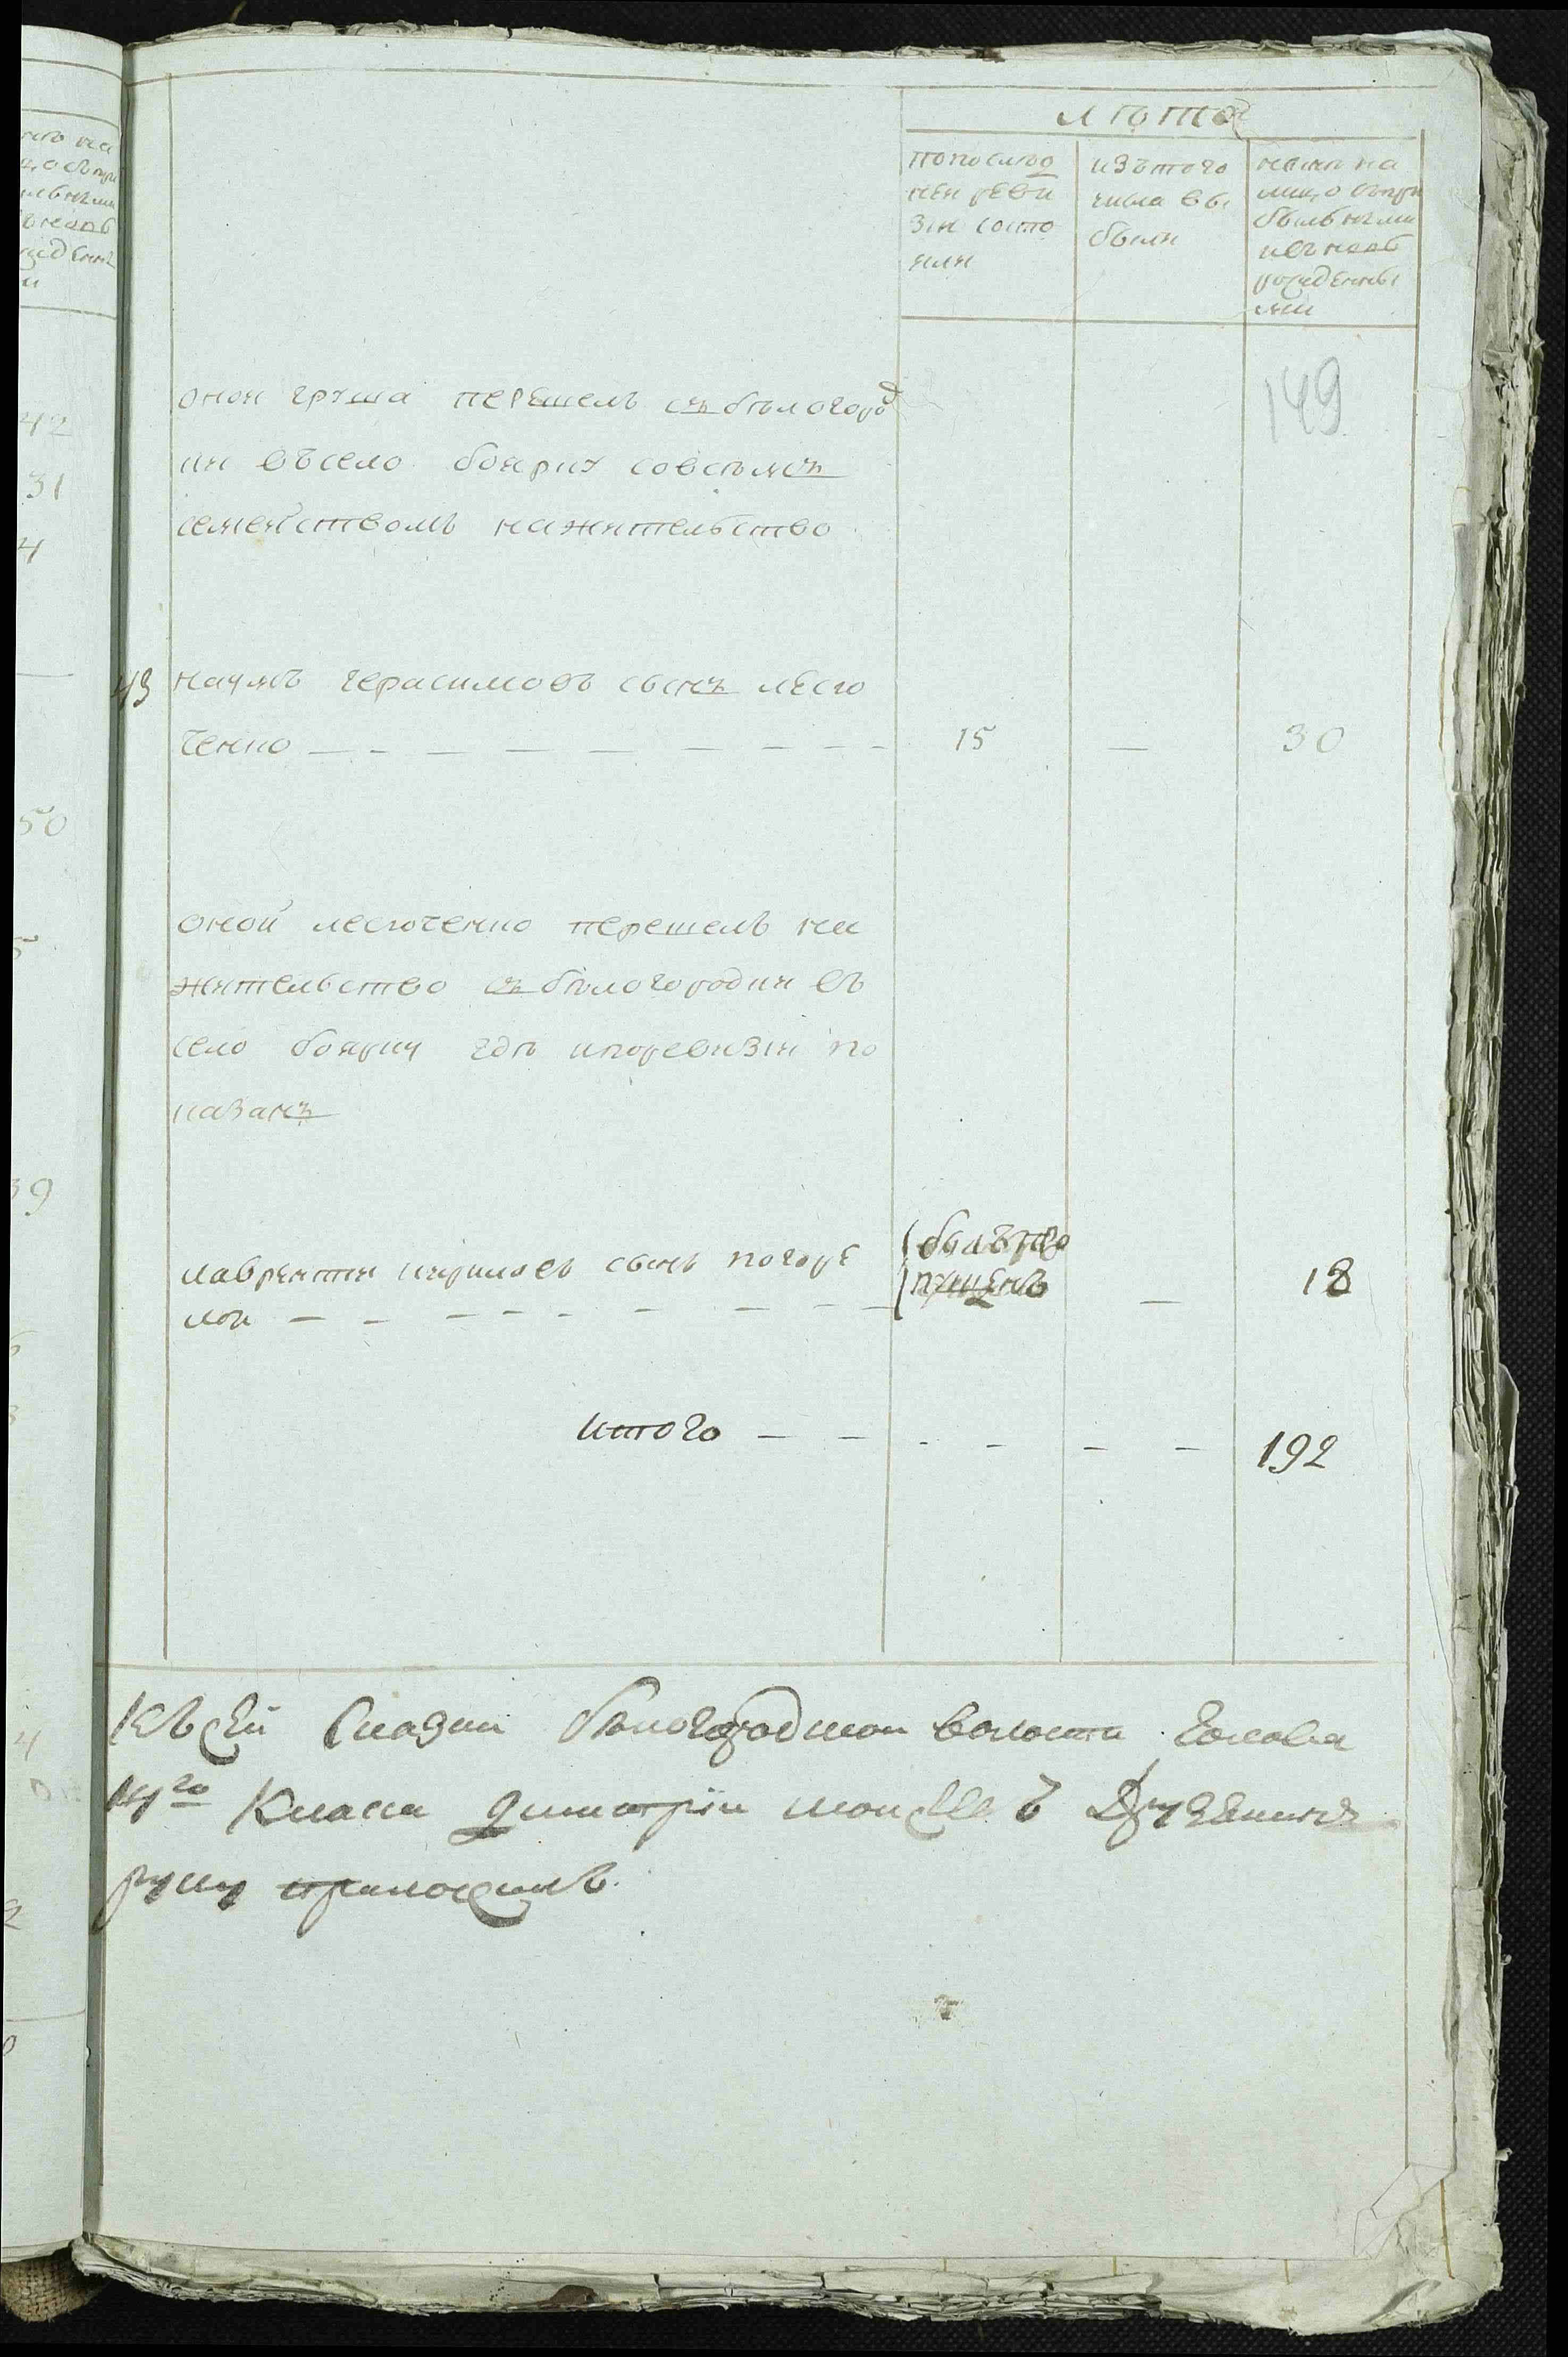 лѣта
попослѣд
ней реви
зіи состо
яли
изътого
числа вы
были
нынѣ на
лицо съпри
былыми
исъновъ
рожденны
ми
149
оной груша перешелъ съ бѣлогород
ки въсело боярку совсѣмъ
семействомъ нажительство
43 наумъ герасимовъ сынъ лесю
ченко 15 — 30
оной лесюченко перешелъ на
жительство съ бѣлогородки въ
село боярку гдѣ иноревизіи по
казанъ
лаврентій кириловъ сынъ погоре
лой
былъ про
пущенъ — 18
итого 192
Къ сей скаски бѣлогородской волости голова
14го Класса димитрій
руку приложилъ
42
31
4
50
5
39
4